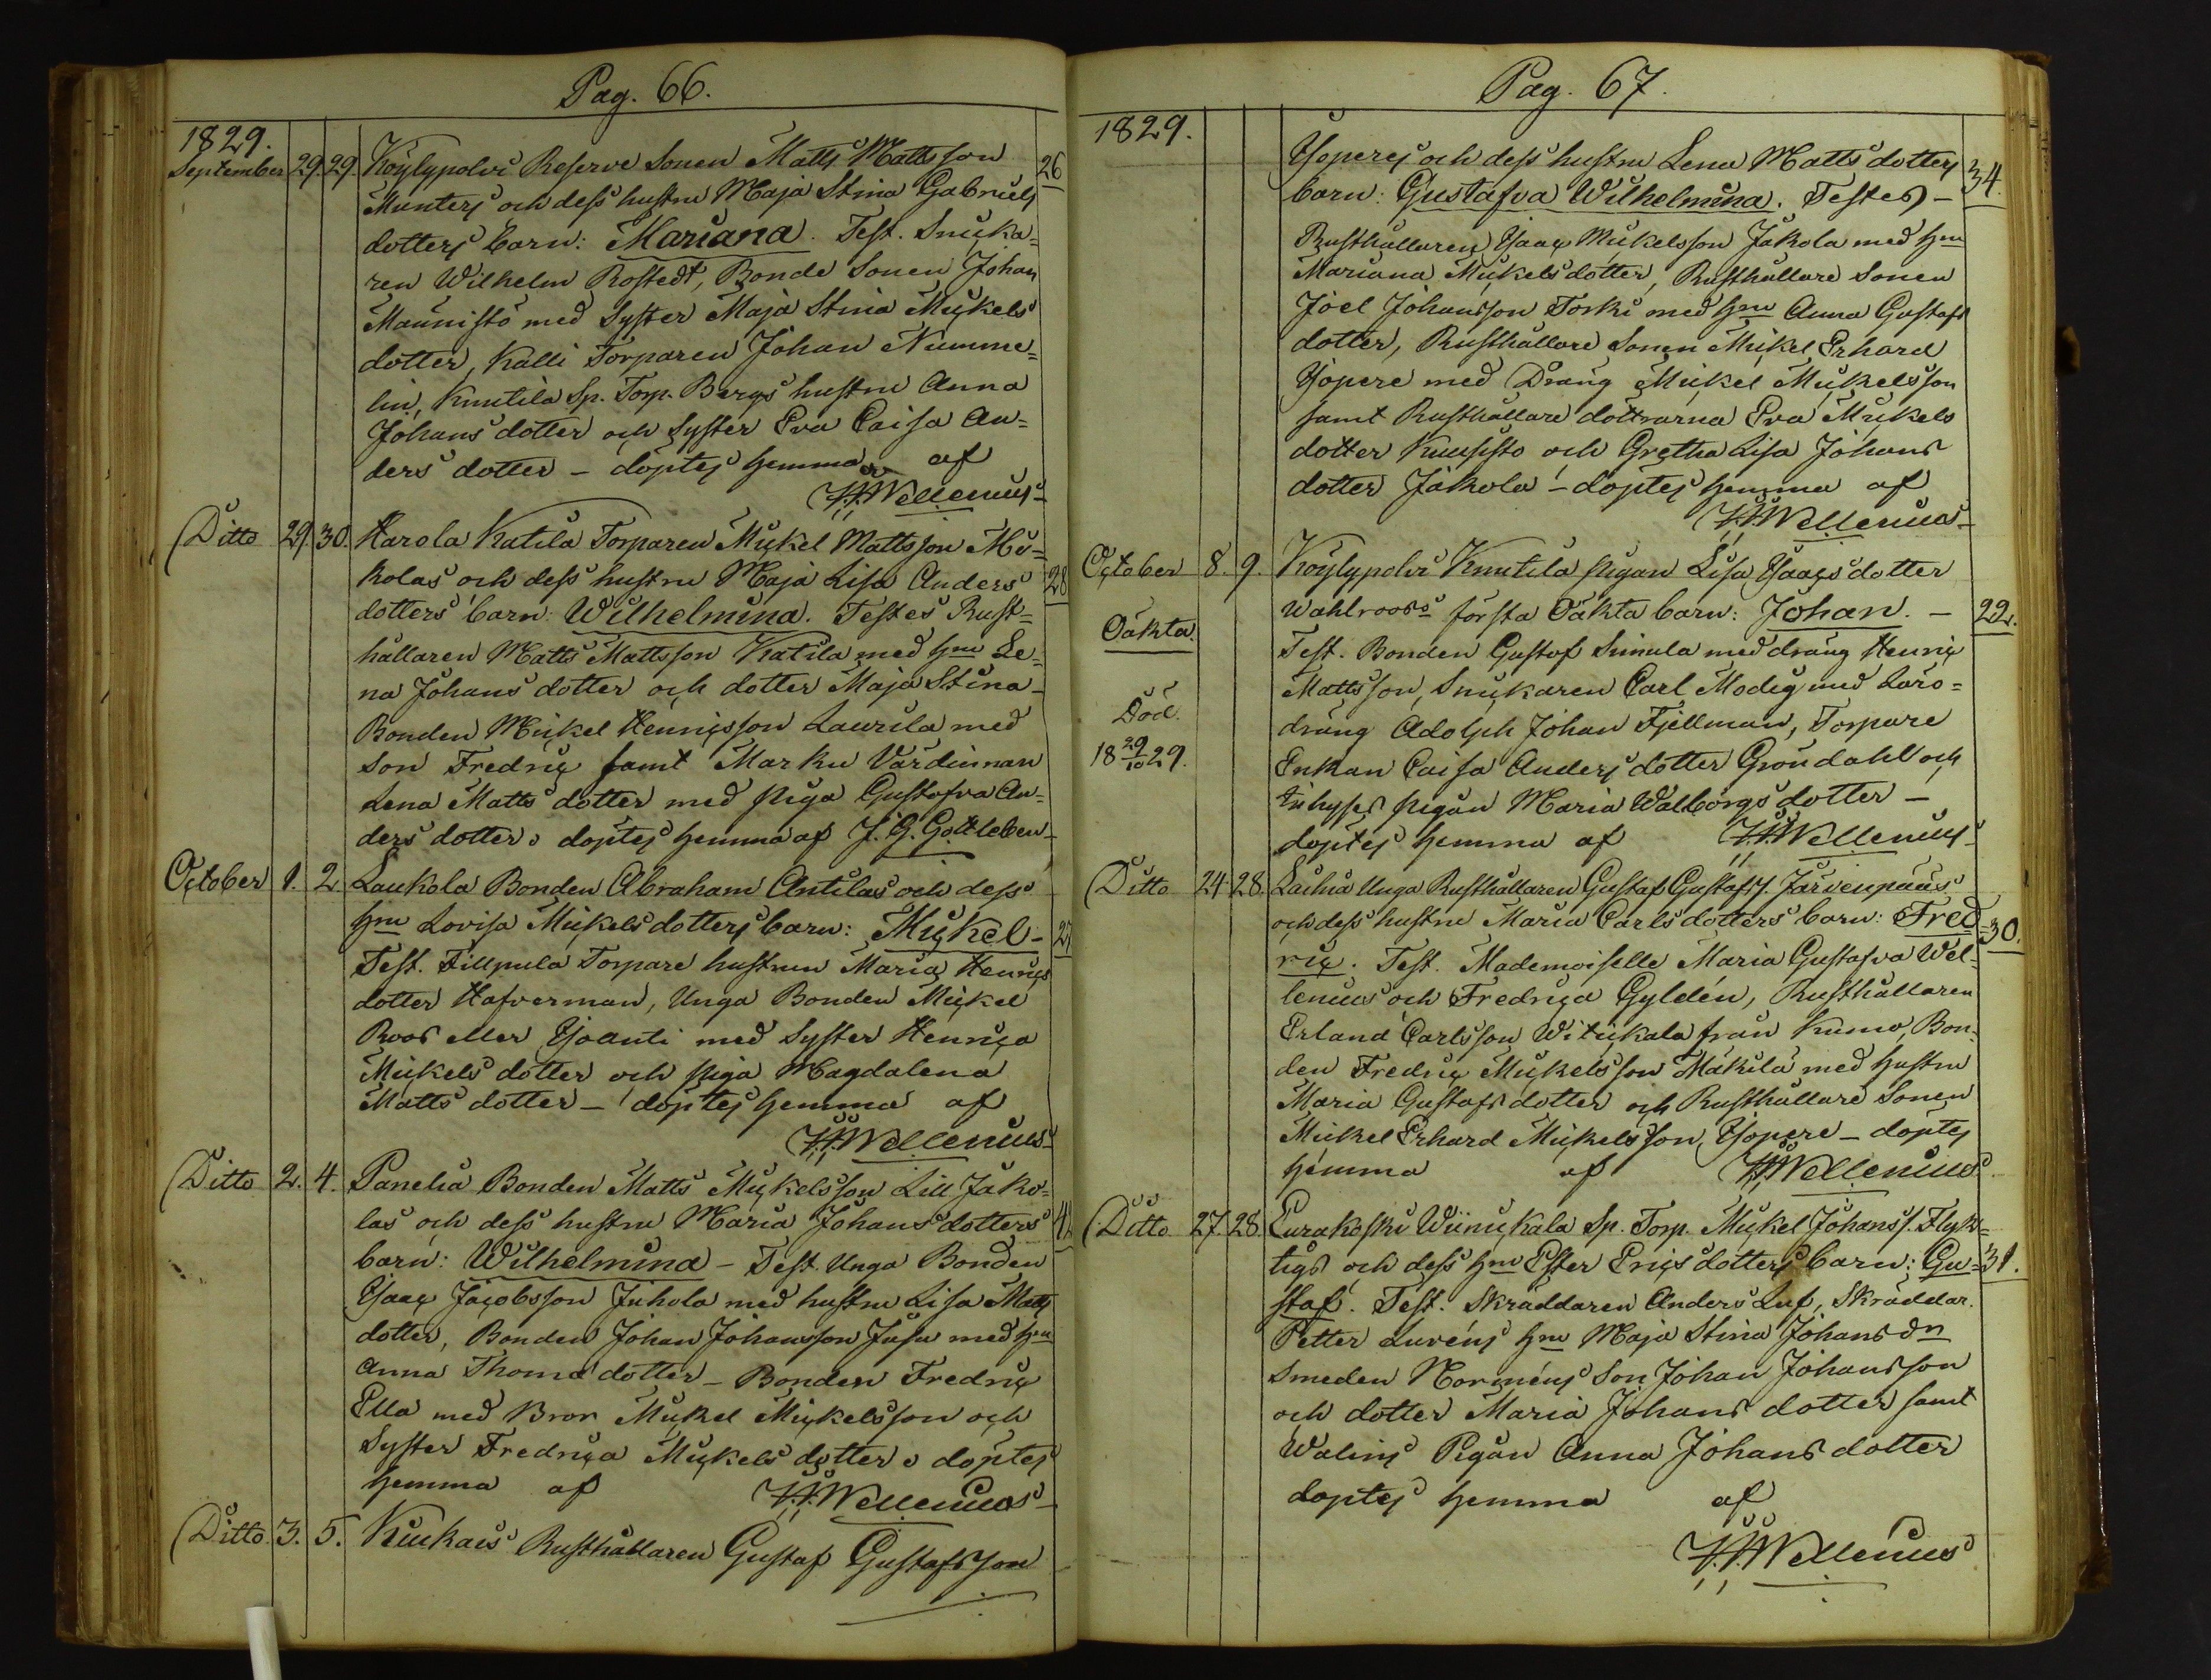 Pag. 66.
1829.
September 29. 29. Köylypolvi Reserve Sonen Matts Mattsson 26
Munters och dess hustru Maja Stina Gabriels
dotters barn: Mariana. Test. Snicka=
ren Wilhelm Rostedt, Bonde Sonen Johan
Maunisto med Syster Maja Stina Mickels
dotter, Kalli Torparen Johan Numme=
lin, Knutila Sp. Torp. Bergs hustru Anna
Johans dotter och Syster Eva Caisa An=
ders dotter – döptes hemma af
Wellenius
Ditto 29. 30. Harola Katila Torparen Mickel Mattsson Mi=
kolas och dess hustru Maja Lisa Anders 28
dotters barn: Wilhelmina. Testes Rust=
hållaren Matts Mattsson Katila med hru Le=
na Johans dotter och dotter Maja Stina –
Bonden Mickel Henricsson Laurila med
Son Fredric samt Marku Värdinnan
Lena Matts dotter med piga Gustafva An=
ders dotter, döptes hemma af J. G. Gottleben
October 1. 2. Laukola Bonden Abraham Antilas och dess
hru Lovisa Mickels dotters barn: Mickel – 27
Test. Fillpula Torpare hustrun Maria Henrics
dotter Hafverman, Unga Bonden Mickel
Roos eller Yjoanti med Syster Henrica
Mickels dotter och piga Magdalena
Matts dotter – döptes hemma af
Wellenius
Ditto 2. 4. Panelia Bonden Matts Mickelsson Lill Jako=
las och dess hustru Maria Johans dotters
barn: Wilhelmina – Test. Unga Bonden
Isaac Jacobsson Juhola med hustru Lisa Matts
dotter, Bonden Johan Johansson Jusu med hru
Anna Thomas dotter – Bonden Fredric
Ella med Bror Mickel Mickelsson och
Syster Fredrica Mickels dotter, döptes
hemma af Wellenius
Ditto. 3. 5. Kiukais Rusthållaren Gustaf Gustafsson
Pag. 67.
1829.
Yjoperes och dess hustru Lena Matts dotters 34.
barn: Gustafva Wilhelmina. Testes –
Rusthållaren Isaac Mickelsson Jakola med hru
Mariana Mickels dotter, Rusthållare Sonen
Joel Johansson Torki med hru Anna Gustafs
dotter, Rusthållare Sonen Mickel Erhard
Yjopere med Dräng Mickel Mickelsson
samt Rusthållare döttrarna Eva Mickels
dotter Kuusisto och Gretha Lisa Johans
dotter Jakola – döptes hemma af
Wellenius
October 8. 9. Köylypolvi Knutila pigan Lisa Isaacs dotter
Wahlroos's första Oäkta barn: Johan. – 22.
Oäkta.
Test. Bonden Gustaf Simula med dräng Henric
Mattsson, Snickaren Carl Modig med Läro=
Död.
dräng Adolph Johan Fjellman, Torpare
18 29/10 29.
Enkan Caisa Anders dotter Gröndahl och
Inhyses pigan Maria Walborgs dotter –
döptes hemma af Wellenius
Ditto 24 28. Laihia Unga Rusthållaren Gustaf Gustafss. Järvenpääs
och dess hustru Maria Carls dotters barn: Fred= 30.
ric. Test. Mademoiselle Maria Gustafva Wel=
lenius och Fredrica Gyldén, Rusthållaren
Erland Carlsson Witickala från Kumo, Bon=
den Fredric Mickelsson Mäkilä med hustru
Maria Gustafs dotter och Rusthållare Sonen
Mickel Erhard Mickelsson Yjopere – döptes
hemma af Wellenius
Ditto 27 28. Eurakoski Wiinickala Sp. Torp. Mickel Johanss. Flyk=
tigs och dess hru Ester Erics dotters barn: Gu= 31.
staf. Test. Skräddaren Anders Luf, Skräddar.
Petter Luréns hru Maja Stina Johans dr
Smeden Norméns Son Johan Johansson
och dotter Maria Johans dotter samt
Walins Pigan Anna Johans dotter
döptes hemma af
Wellenius